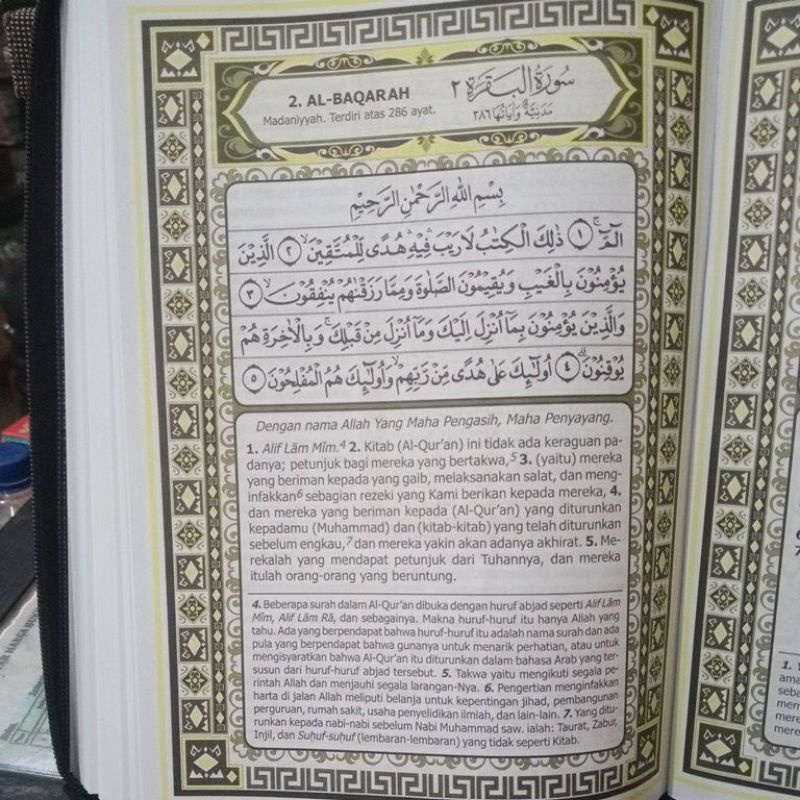 2. AL-BAQARAH
Madaniyyah. Terdiri atas 286 ayat.
سُورَةُ الْبَقَرَةِ ٢
مَدَنِيَّةٌ وَآيَاتُهَا ٢٨٦
بِسْمِ اللّٰهِ الرَّحْمٰنِ الرَّحِيْمِ
الۤمّۤ ۚ ١ ذٰلِكَ الْكِتٰبُ لَا رَيْبَ ۛ فِيْهِ ۛ هُدًى لِّلْمُتَّقِيْنَۙ ٢ الَّذِيْنَ
يُؤْمِنُوْنَ بِالْغَيْبِ وَيُقِيْمُوْنَ الصَّلٰوةَ وَمِمَّا رَزَقْنٰهُمْ يُنْفِقُوْنَۙ ٣
وَالَّذِيْنَ يُؤْمِنُوْنَ بِمَآ اُنْزِلَ اِلَيْكَ وَمَآ اُنْزِلَ مِنْ قَبْلِكَ ۚ وَبِالْاٰخِرَةِ هُمْ
يُوْقِنُوْنَۗ ٤ اُولٰۤىِٕكَ عَلٰى هُدًى مِّنْ رَّبِّهِمْ ۙ وَاُولٰۤىِٕكَ هُمُ الْمُفْلِحُوْنَ ٥
Dengan nama Allah Yang Maha Pengasih, Maha Penyayang.
1. Alif Lām Mīm.4 2. Kitab (Al-Qur'an) ini tidak ada keraguan pa-
danya; petunjuk bagi mereka yang bertakwa,5 3. (yaitu) mereka
yang beriman kepada yang gaib, melaksanakan salat, dan meng-
infakkan6 sebagian rezeki yang Kami berikan kepada mereka, 4.
dan mereka yang beriman kepada (Al-Qur'an) yang diturunkan
kepadamu (Muhammad) dan (kitab-kitab) yang telah diturunkan
sebelum engkau,7 dan mereka yakin akan adanya akhirat. 5. Me-
rekalah yang mendapat petunjuk dari Tuhannya, dan mereka
itulah orang-orang yang beruntung.
4. Beberapa surah dalam Al-Qur'an dibuka dengan huruf abjad seperti Alif Lām
Mīm, Alif Lām Rā, dan sebagainya. Makna huruf-huruf itu hanya Allah yang
tahu. Ada yang berpendapat bahwa huruf-huruf itu adalah nama surah dan ada
pula yang berpendapat bahwa gunanya untuk menarik perhatian, atau untuk
mengisyaratkan bahwa Al-Qur'an itu diturunkan dalam bahasa Arab yang ter-
susun dari huruf-huruf abjad tersebut. 5. Takwa yaitu mengikuti segala pe-
rintah Allah dan menjauhi segala larangan-Nya. 6. Pengertian menginfakkan
harta di jalan Allah meliputi belanja untuk kepentingan jihad, pembangunan
perguruan, rumah sakit, usaha penyelidikan ilmiah, dan lain-lain. 7. Yang ditu-
runkan kepada nabi-nabi sebelum Nabi Muhammad saw. ialah: Taurat, Zabur,
Injil, dan Suhuf-suhuf (lembaran-lembaran) yang tidak seperti Kitab.